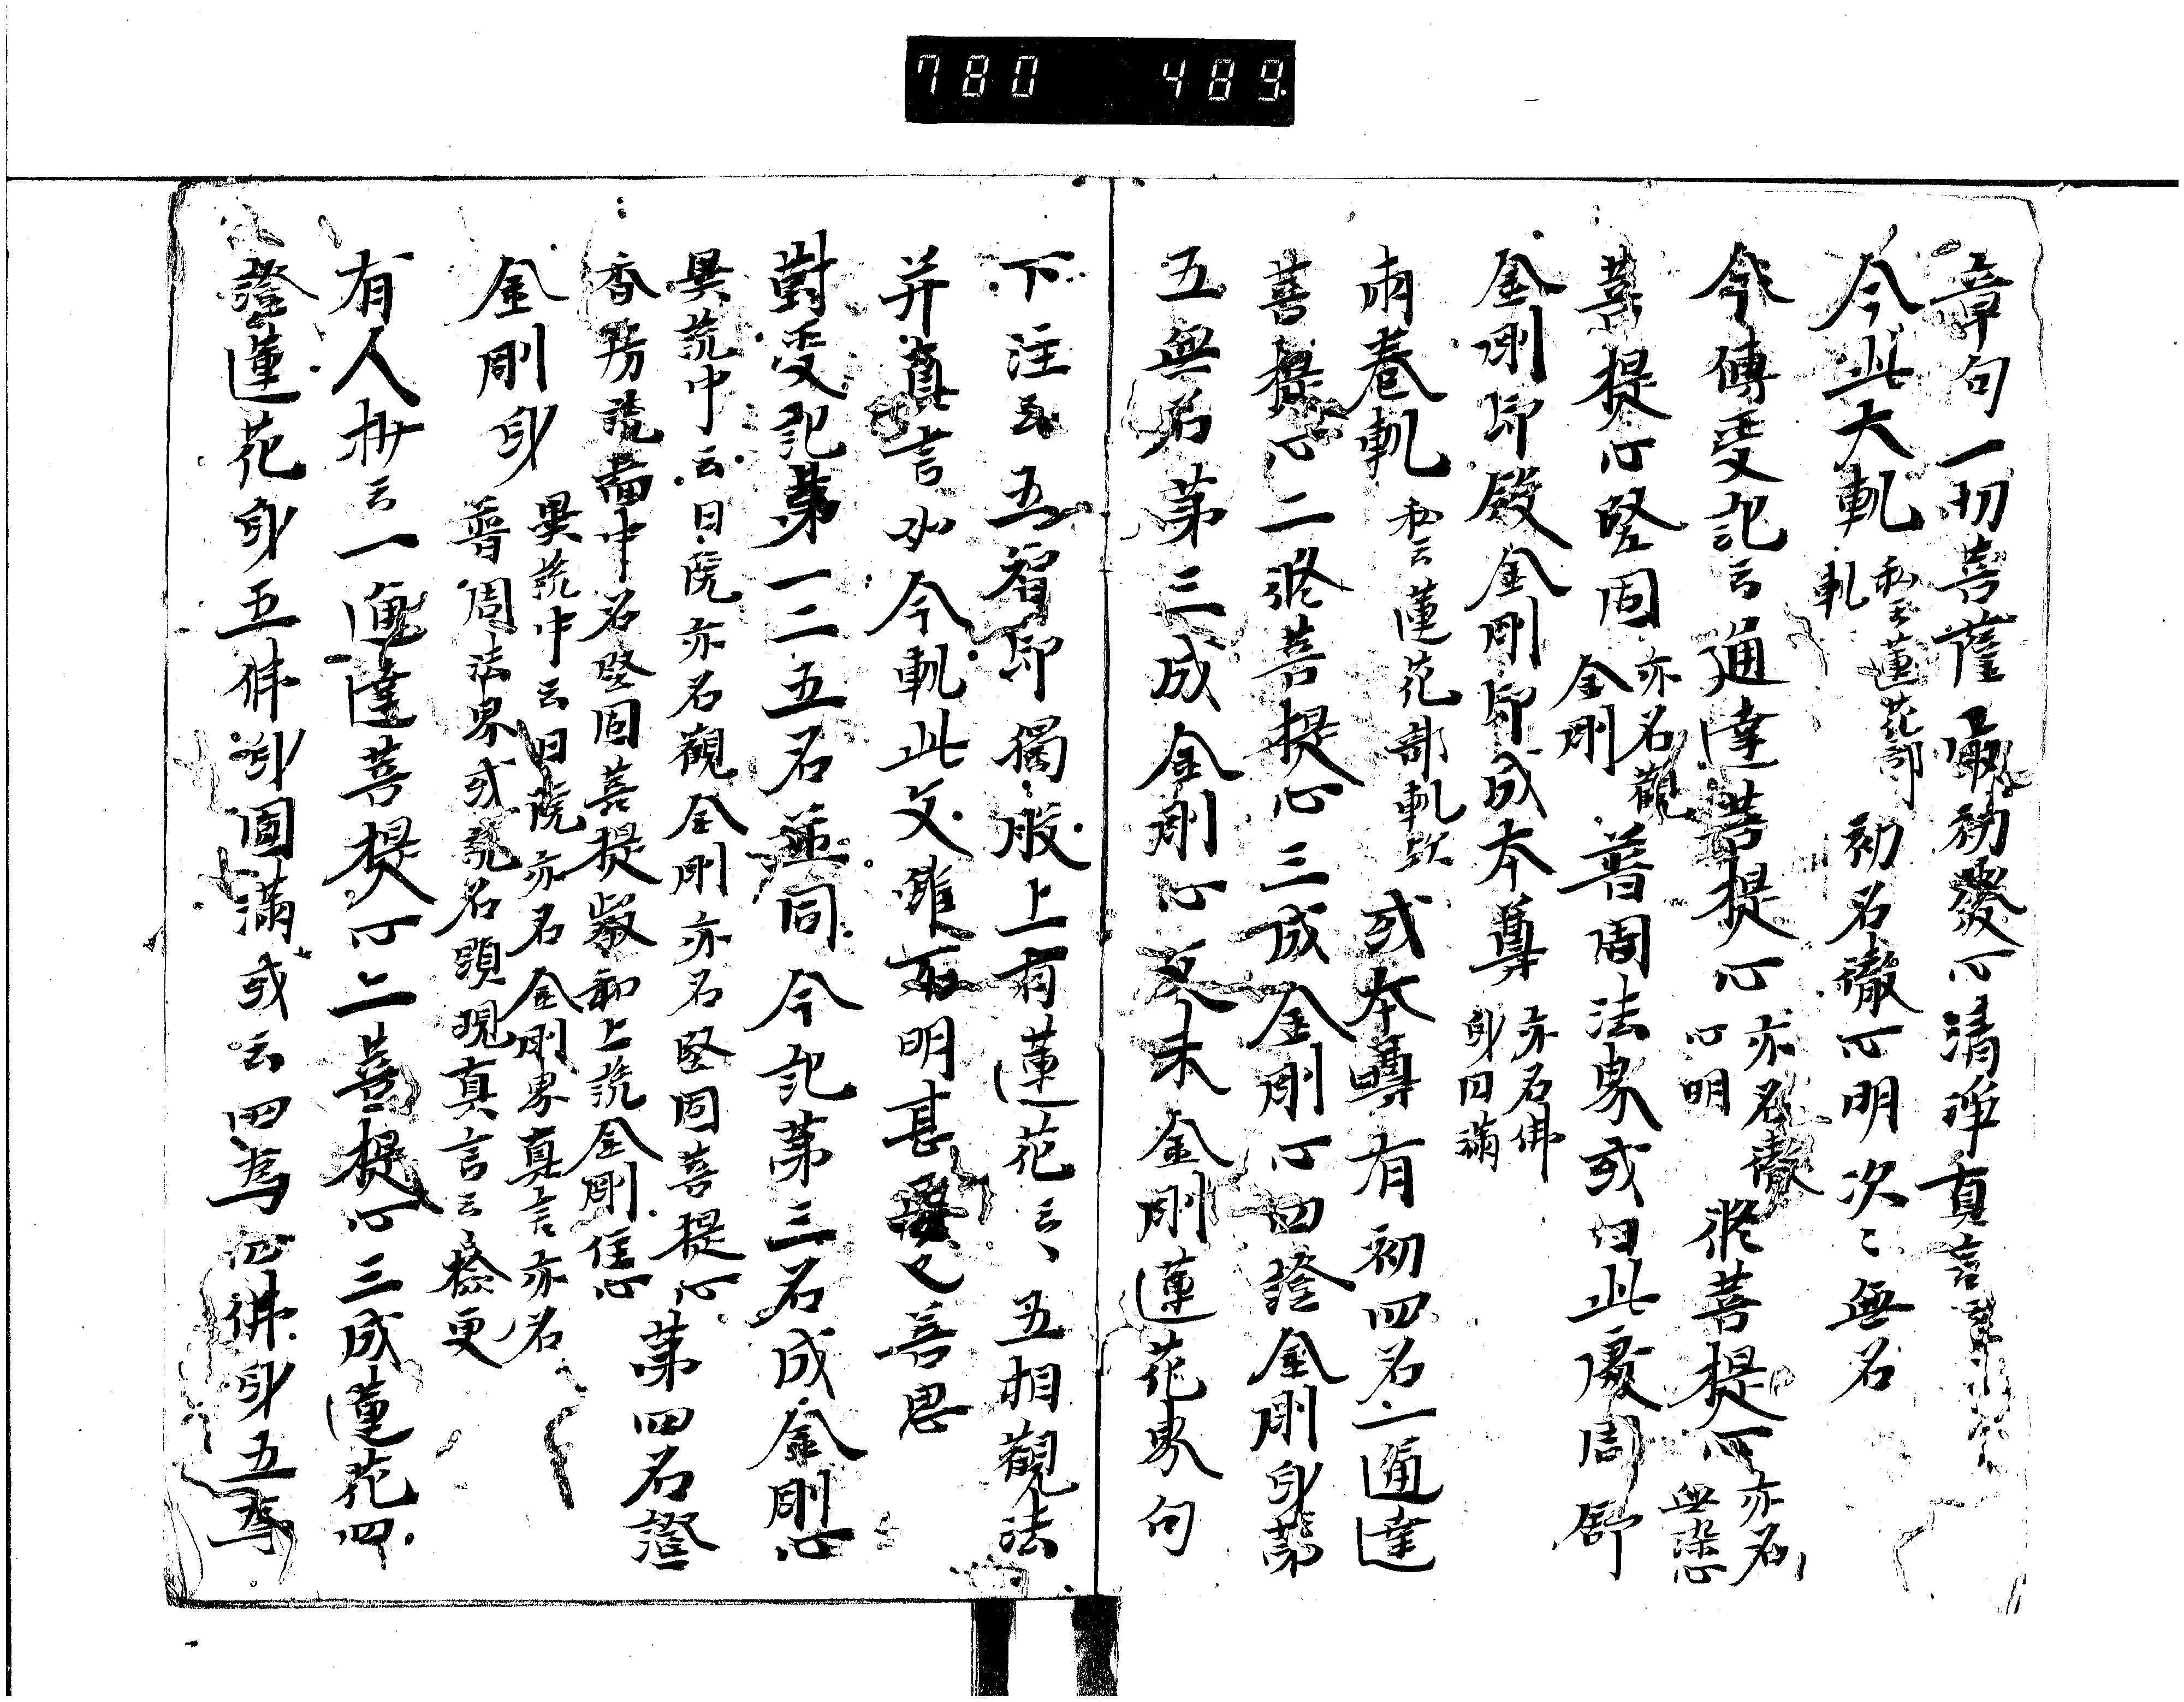 780 489
章句一切菩薩最初發心清淨真言
今此大軌私云蓮花部軌初名徹心明次々無名
今傳受記云通達菩提心亦名徹心明修菩提心亦名無染心
菩提心堅固亦名觀金剛普周法界或曰此處周舒
金剛印殿金剛印成本尊亦名佛身円滿
兩卷軌私云蓮花部軌歟或本尊有初四名一通達
菩提心二修菩提心三成金剛心四證金剛身第
五無名第三成金剛心文未金剛蓮花界句
下注云五智印獨股上有蓮花云々五相觀法
并真言如今軌此文雖明甚文善思
對受記第一二五名並同今記第三名成金剛心
異説中云曰院亦名觀金剛亦名堅固菩提心第四名證
香房説中名堅固菩提嚴和上説金剛信心
金剛身異説中云曰院亦名金剛界真言亦名普周法界或説名顯現真言云檢更
有人抄云一通達菩提心二菩提心三成蓮花四
證蓮花身五佛身圓滿或云四為佛身五為